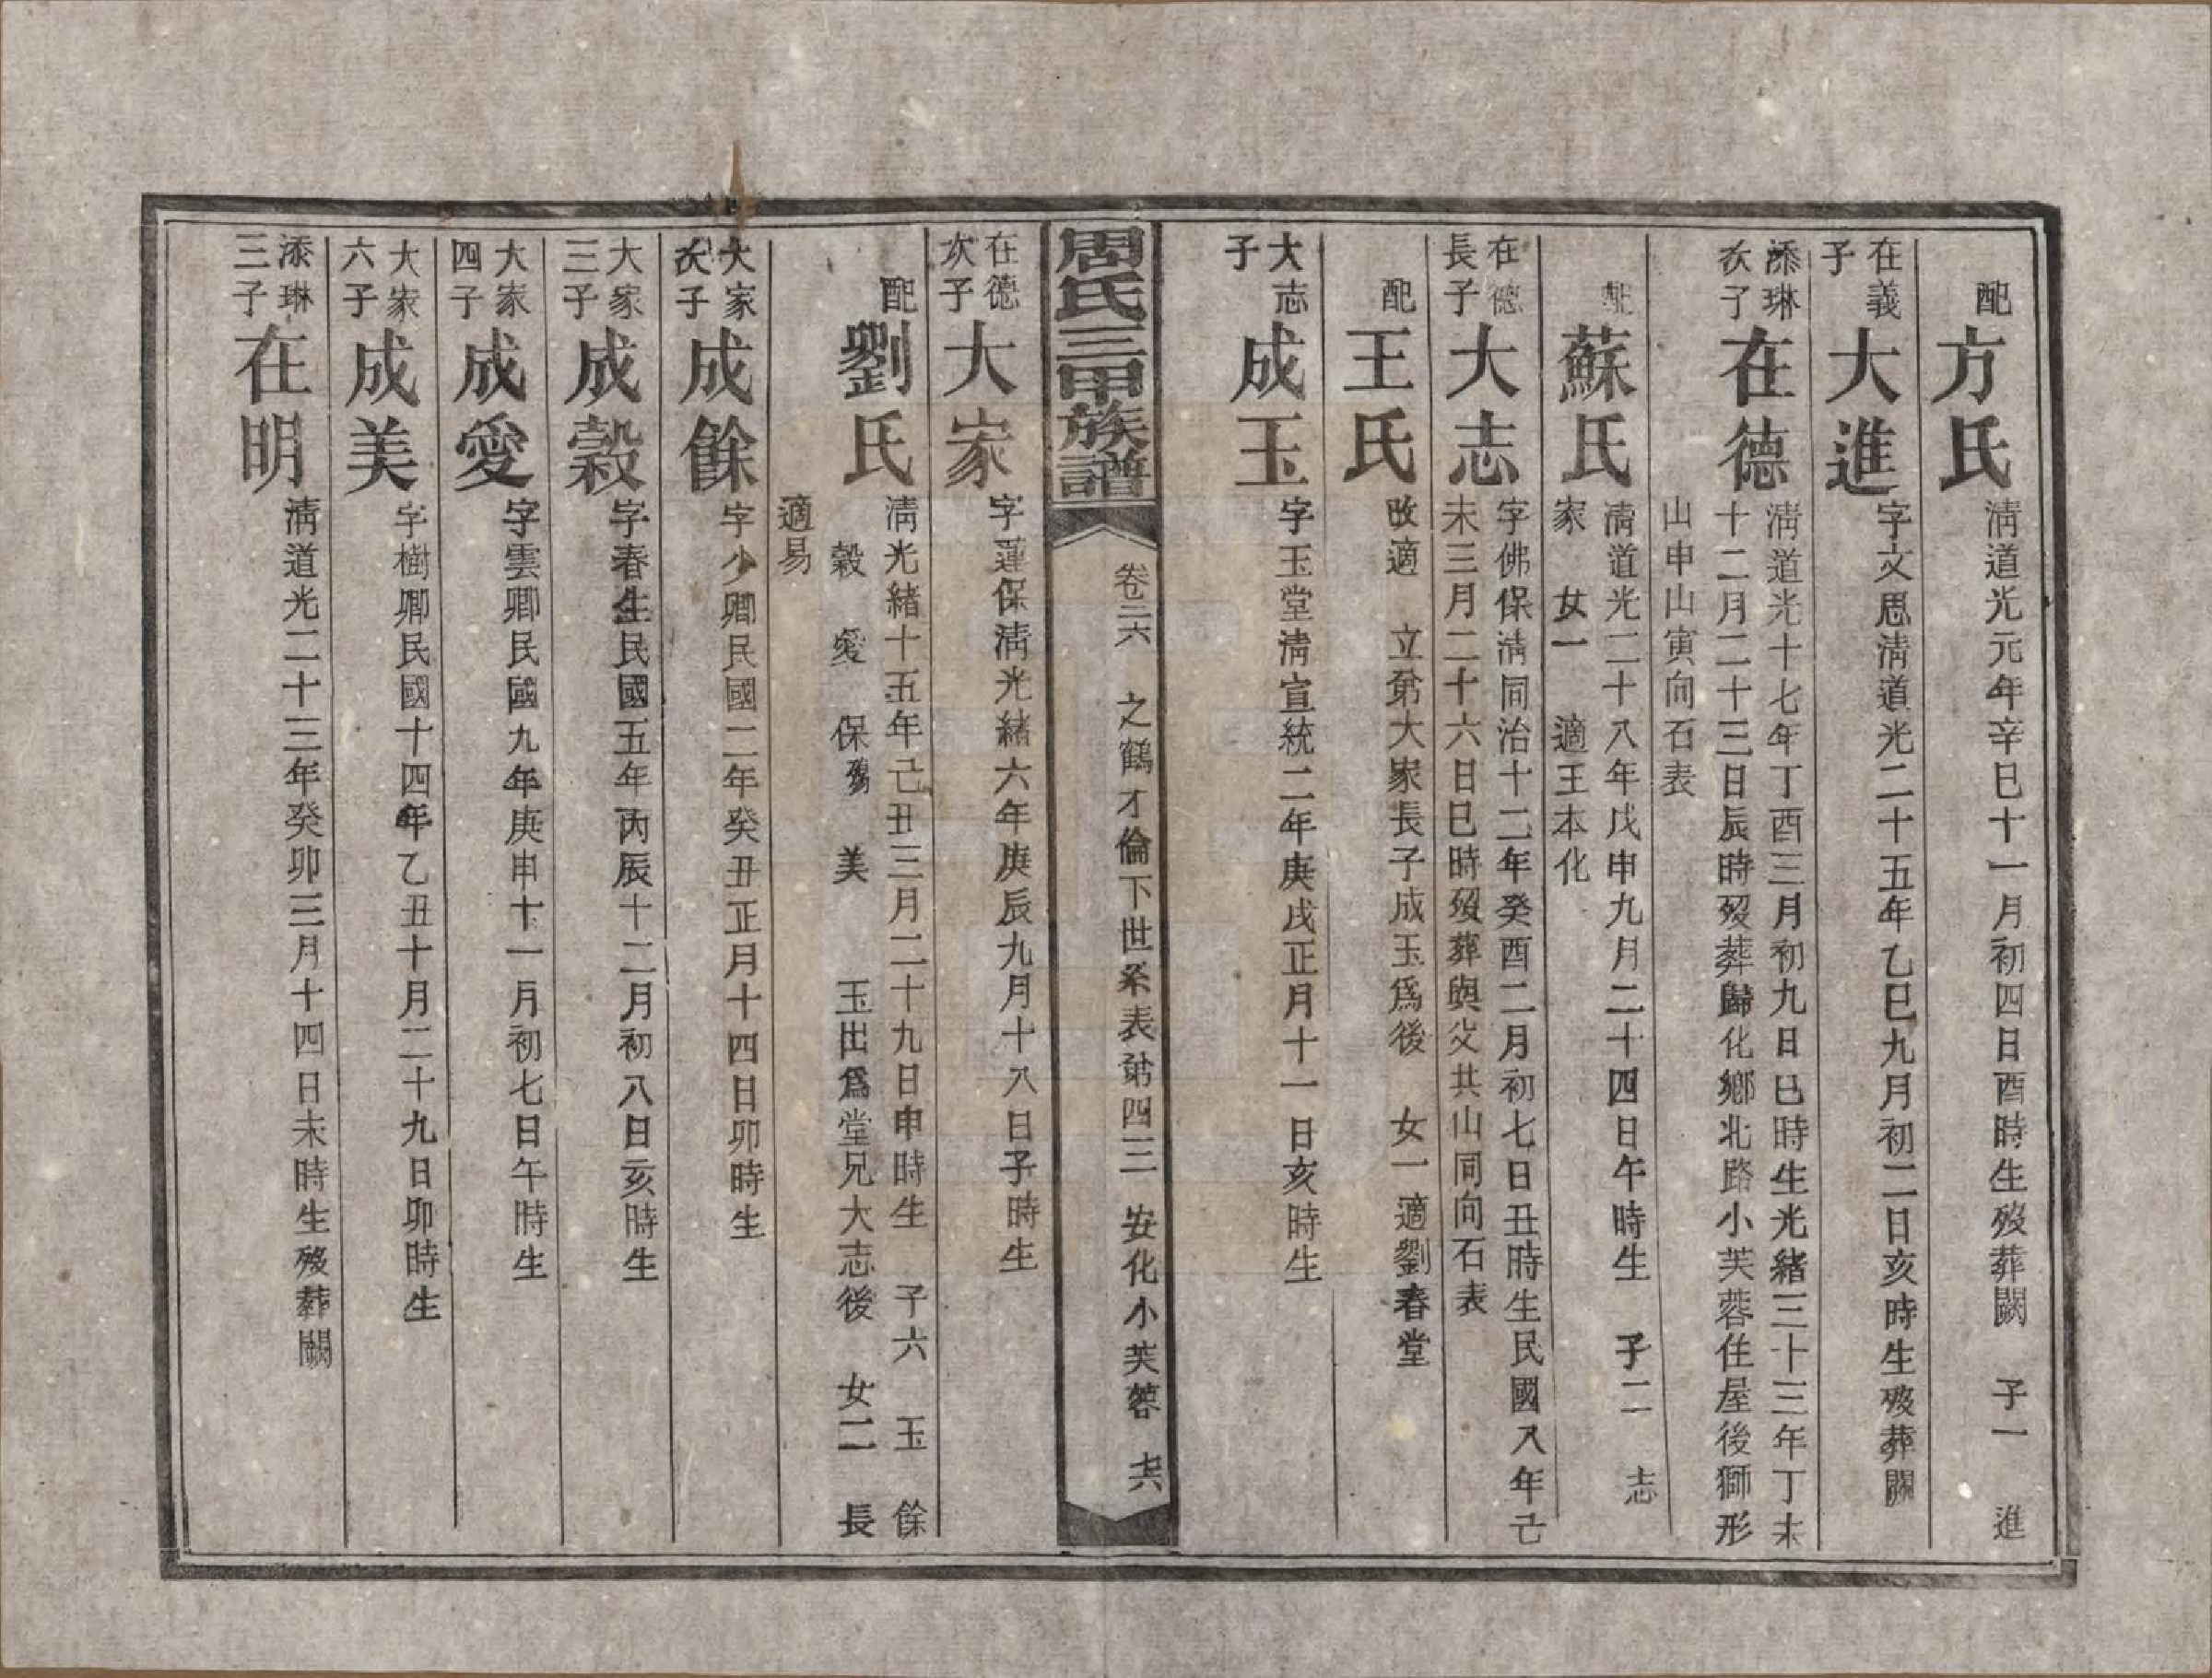 配
方氏
淸道光元年辛巳十一月初四日酉時生歿葬闕　子一　進
在義
子
大進
字文思淸道光二十五年乙巳九月初二日亥時生歿葬闕
添琳
次子
在德
淸道光十七年丁酉三月初九日巳時生光緖三十三年丁未
十二月二十三日辰時歿葬歸化鄉北路小芙蓉住屋後獅形
山申山寅向石表
配
蘇氏
淸道光二十八年戊申九月二十四日午時生　子二　志
家　女一　適王本化
在德
長子
大志
字佛保淸同治十二年癸酉二月初七日丑時生民國八年己
未三月二十六日巳時歿葬與父共山同向石表
配
王氏
改適　立弟大家長子成玉爲後　女一適劉春堂
大志
子
成玉
字玉堂淸宣統二年庚戌正月十一日亥時生
周氏三甲族譜
卷二六　之鶴才倫下世系表第四三　安化小芙蓉　十六
在德
次子
大家
字蓮保淸光緖六年庚辰九月十八日子時生
配
劉氏
淸光緖十五年己丑三月二十九日申時生　子六　玉　餘
穀　愛　保殤　美　玉出爲堂兄大志後　女二　長
適易
大家
次子
成餘
字少卿民國二年癸丑正月十四日卯時生
大家
三子
成穀
字春生民國五年丙辰十二月初八日亥時生
大家
四子
成愛
字雲卿民國九年庚申十一月初七日午時生
大家
六子
成美
字樹卿民國十四年乙丑十月二十九日卯時生
添琳
三子
在明
淸道光二十三年癸卯三月十四日未時生歿葬闕